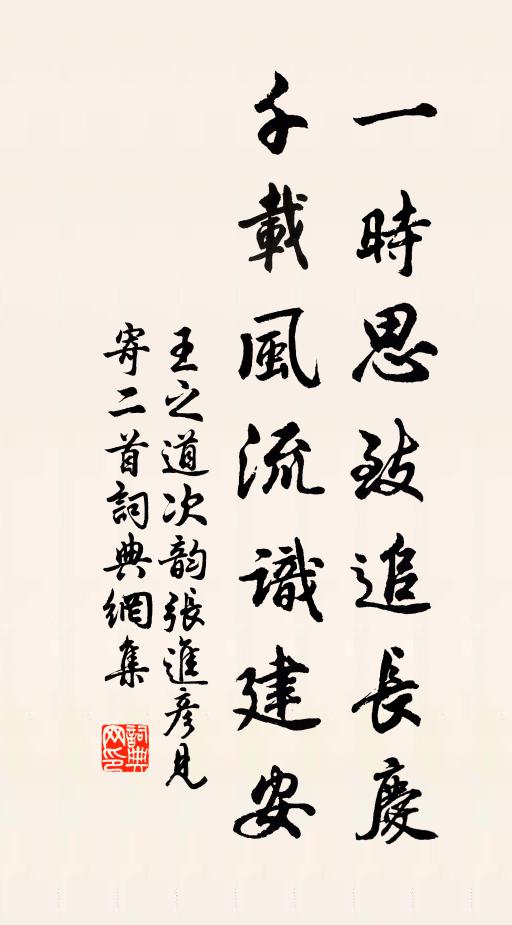 一時思致追長慶
千載風流識建安
王之道次韵張進彦見
寄二首詞典網集
詞典网印